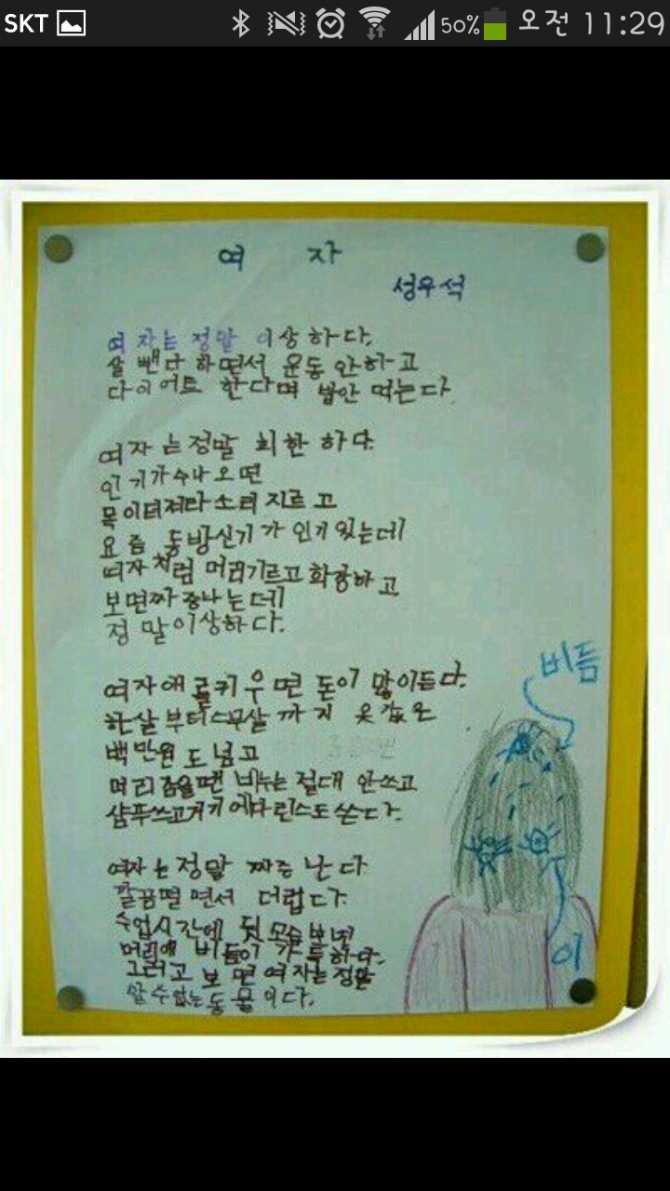 SKT 50% 오전 11:29
여 자
성우석
여자는 정말 이상하다.
살 뺀다 하면서 운동 안하고
다이어트 한다며 밥안 먹는다
여자는정말 희한하다.
인기가수나오면
목이터져라소리지르고
요즘 동방신기가 인기있는데
여자처럼 머리기르고화장하고
보면짜증나는데
정말이상하다.
여자애를키우면 돈이 많이든다.
한살부터스무살까지 옷값은
백만원도넘고
머리감을땐 비누는절대 안쓰고
샴푸쓰고거기에다린스도쓴다.
여자는정말 짜증난다
깔끔떨면서 더럽다
수업시간에 뒷모습보면
머리에 비듬이가득하다.
그러고 보면여자는정말
알수없는동물이다.
비듬
이